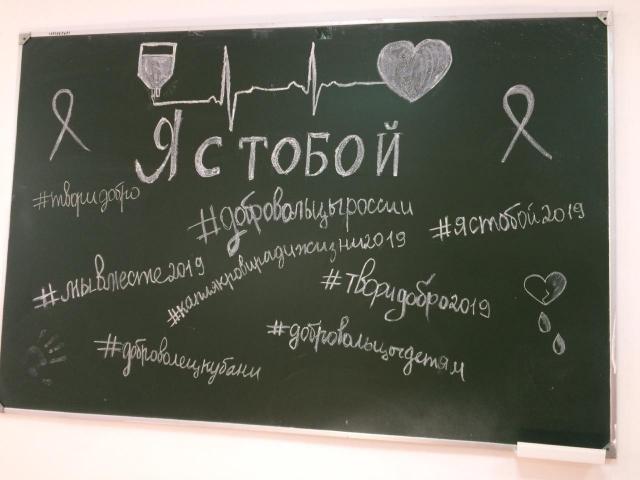 Я С ТОБОЙ
#творидобро
#добровольцыроссии
#ястобой2019
#мывместе2019
#каплякровирадижизни2019
#творидобро2019
#доброволецкубани
#добровольцыдетям